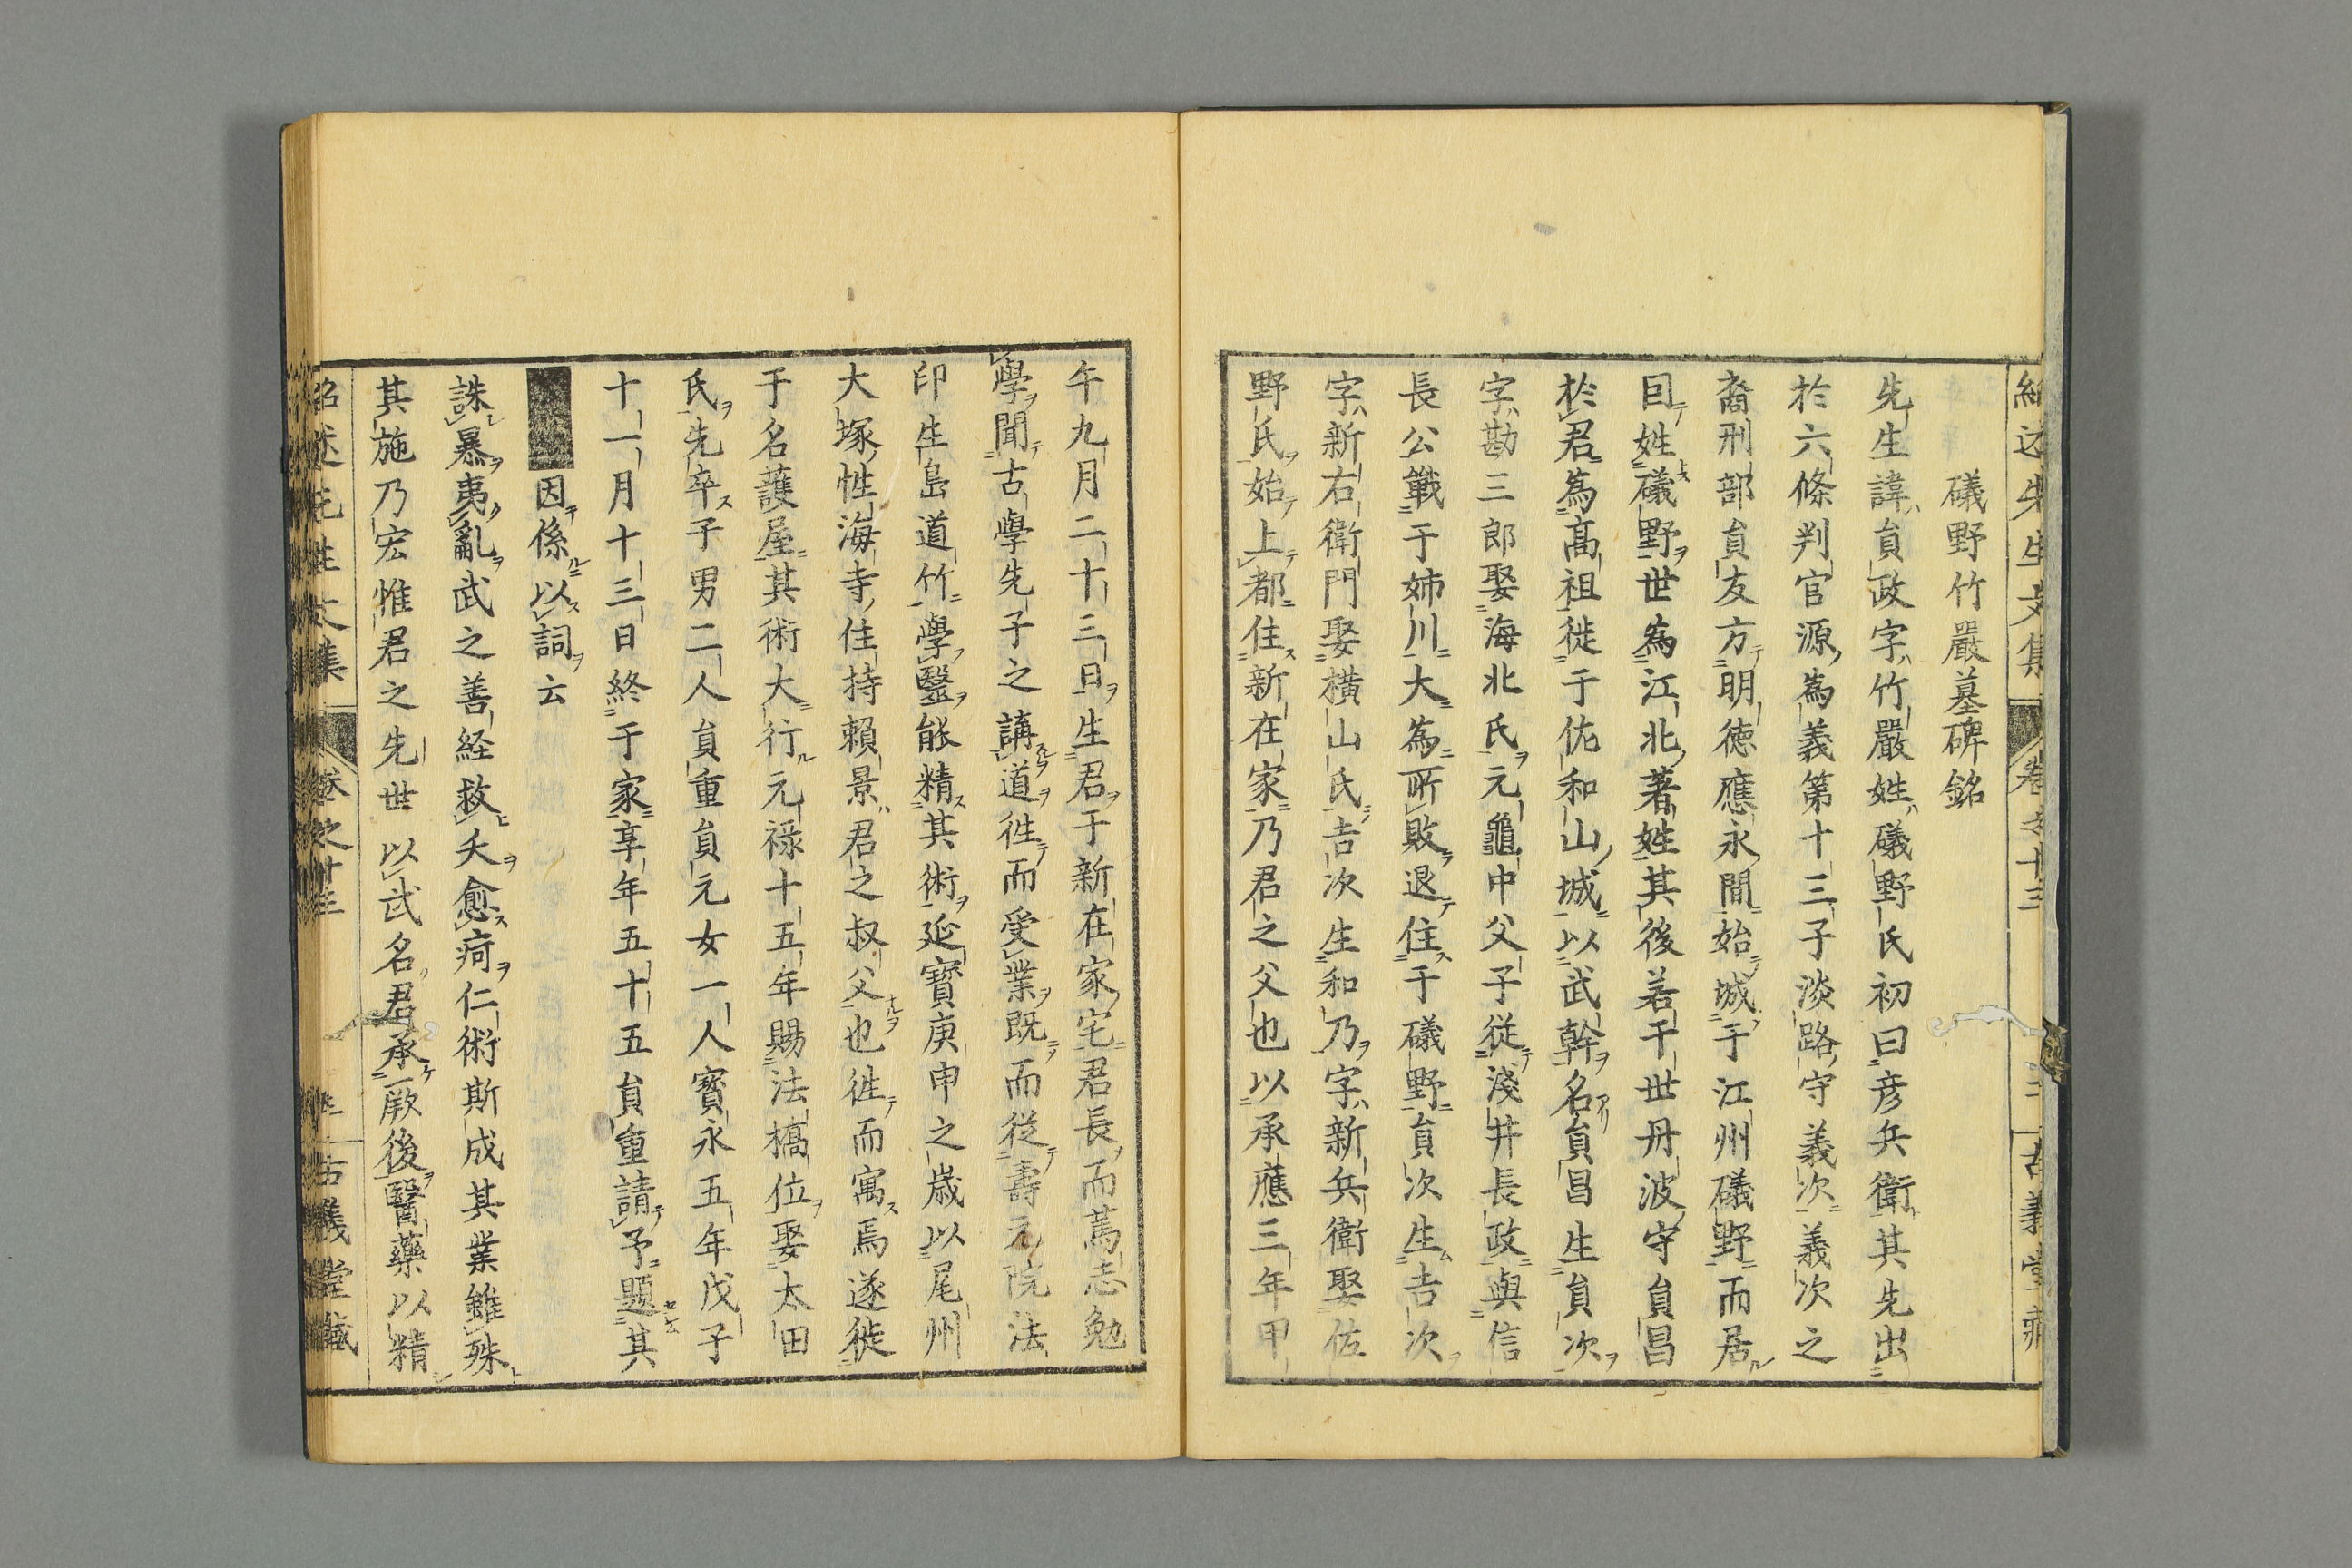 礒野竹嚴墓碑銘
先生諱貟政字竹嚴姓礒野氏初曰彦兵衛其先出
於六條判官源爲義第十三子淡路守義次義次之
裔刑部貟友方明徳應永間始城于江州礒野而居
因姓礒野世爲江北著姓其後若干世丹波守貟昌
於君爲高祖徙于佐和山城以武幹名貟昌生貟次
字勘三郎娶海北氏元龜中父子從淺井長政與信
長公戰于姉川大爲所敗退住于礒野貟次生吉次
字新右衛門娶横山氏吉次生和乃字新兵衛娶佐
野氏始上都住新在家乃君之父也以承應三年甲
午九月二十三日生君于新在家宅君長而篤志勉
學聞古學先子之講道徃而受業既而從壽元院法
印生島道竹學醫能精其術延寶庚申之歳以尾州
大塚性海寺住持頼景君之叔父也徃而寓焉遂徙
于名護屋其術大行元禄十五年賜法橋位娶太田
氏先卒子男二人貟重貟元女一人寳永五年戊子
十一月十三日終于家享年五十五貟重請予題其
因係以詞云
誅暴夷亂武之善経救夭愈疴仁術斯成其業雖殊
其施乃宏惟君之先世以武名君承厥後醫藥以精
紹述先生文集 卷之十三 古義堂藏